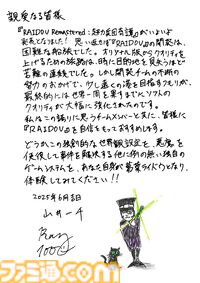 親愛なる皆様
『RAIDOU Remastered：超力兵団奇譚』がいよいよ
発売となりました！ 思い返せば『RAIDOU』の開発は、
困難な船旅でした。オリジナル版からクオリティを
上げるための旅路は、時に目的地を見失うほど
苦難の連続でした。しかし開発チームの不断の
努力のおかげで、少し遠くの港を目指すつもりが、
最終的に世界一周を果すまでにソフトの
クオリティが大幅に強化されたのです。
私はこの誇りに思うチームメンバーと共に、皆様に
『RAIDOU』を自信をもっておすすめします。
どうかこの独創的な世界観設定を、悪魔を
使役して事件を解決する他に例の無い独自の
ゲームシステムを、あなた自身が葛葉ライドウとなり、
体験してみてください!!
2025年6月
ファミ通.com